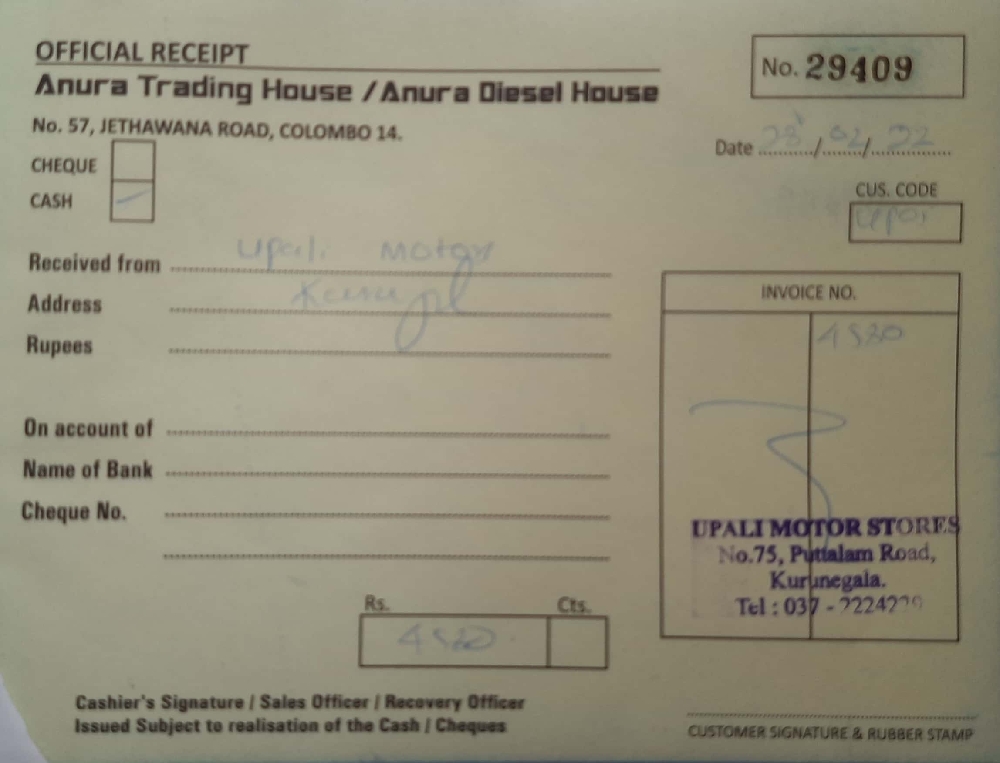 OFFICIAL RECEIPT
Anura Trading House / Anura Diesel House
No. 57, JETHAWANA ROAD, COLOMBO 14.
No. 29409
Date 28/02/22
CHEQUE
CASH
CUS. CODE
Received from Upali Motor
Address
Rupees
INVOICE NO.
4520
On account of
Name of Bank
Cheque No.
UPALI MOTOR STORES
No.75, Puttalam Road,
Kurunegala.
Tel : 037 -
Rs. Cts.
4520
Cashier's Signature / Sales Officer / Recovery Officer
Issued Subject to realisation of the Cash / Cheques
CUSTOMER SIGNATURE & RUBBER STAMP